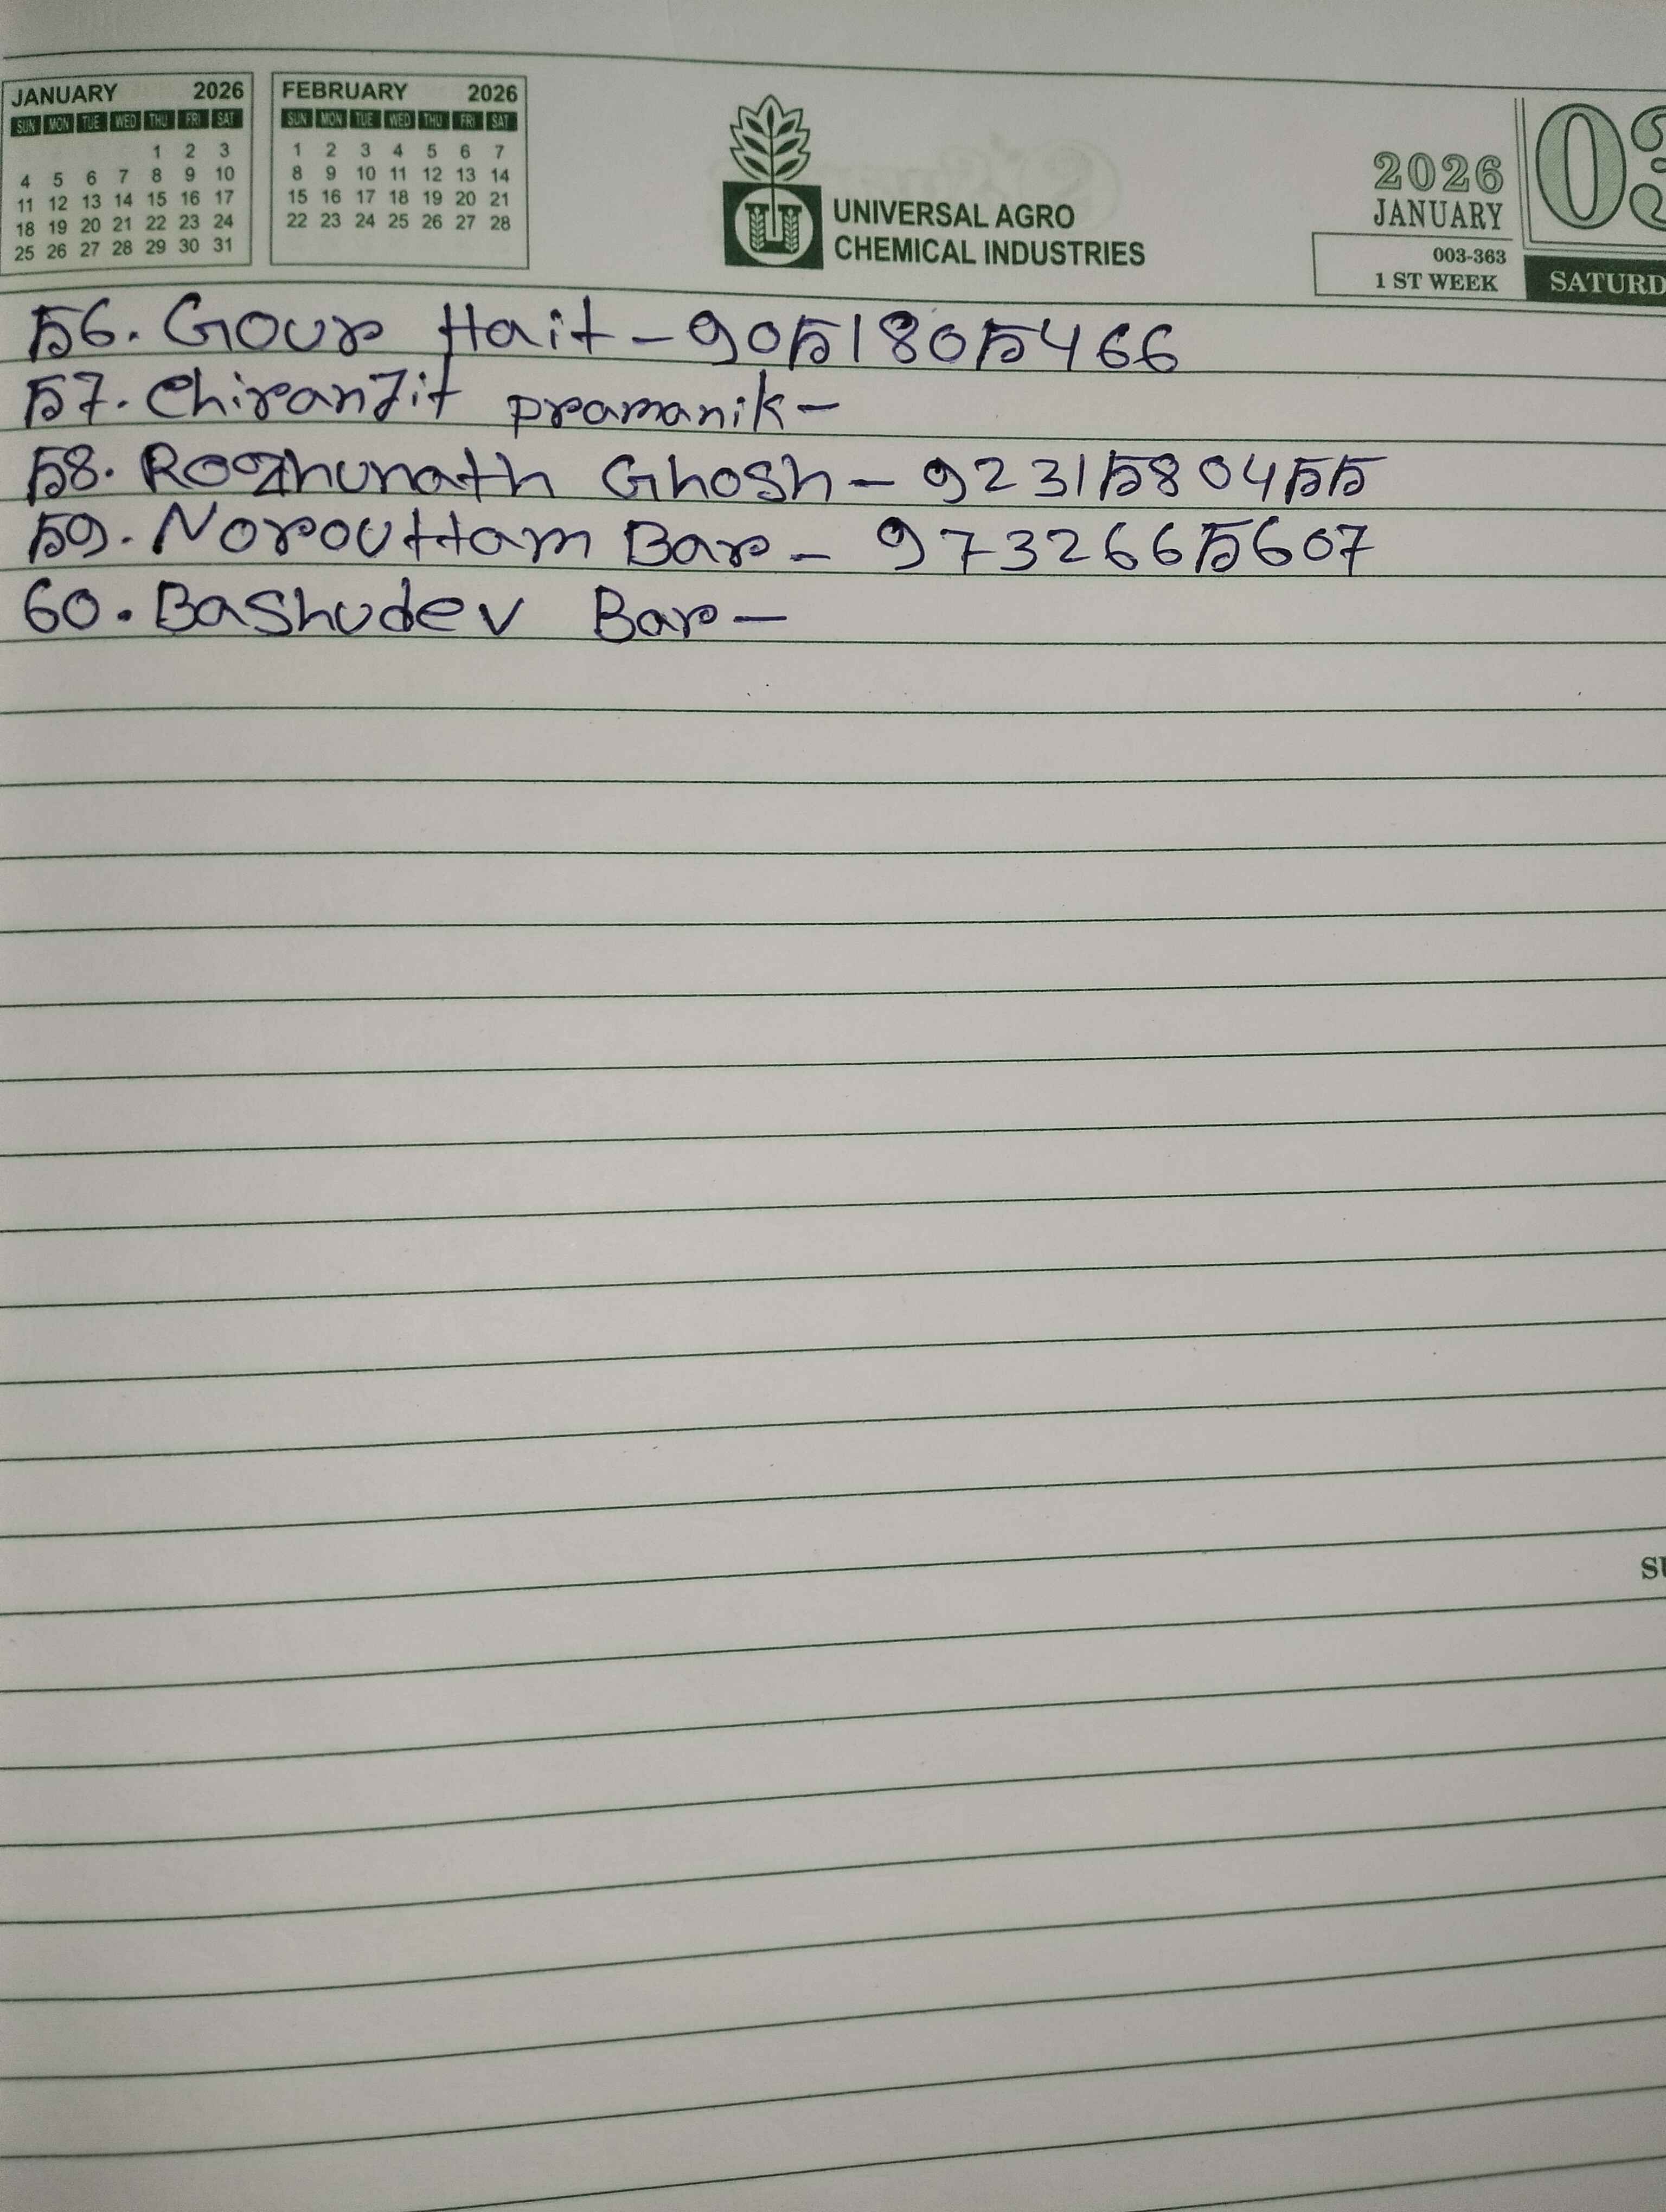 JANUARY 2026
SUN MON TUE WED THU FRI SAT
1 2 3
4 5 6 7 8 9 10
11 12 13 14 15 16 17
18 19 20 21 22 23 24
25 26 27 28 29 30 31
FEBRUARY 2026
SUN MON TUE WED THU FRI SAT
1 2 3 4 5 6 7
8 9 10 11 12 13 14
15 16 17 18 19 20 21
22 23 24 25 26 27 28
UNIVERSAL AGRO
CHEMICAL INDUSTRIES
2026
JANUARY
003-363
1 ST WEEK
03
SATURD
56. Gour Hait - 9051805466
57. ChiranJit pramanik -
58. Roghunath Ghosh - 9231580455
59. Norouttam Bar - 9732665607
60. Bashudev Bar -
SU